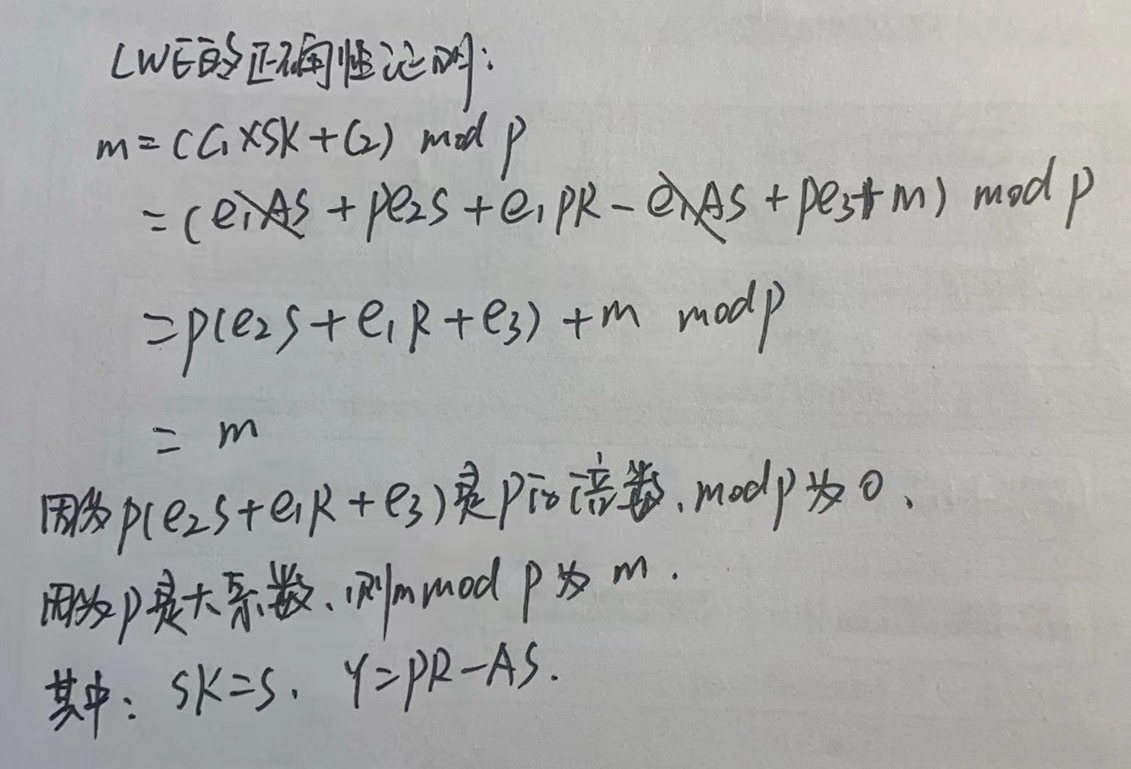 LWE的正确性证明:
m = (C₁×SK+C₂) mod p
= (e₁AS + pe₂S + e₁pR - e₁AS + pe₃ + m) mod p
= p(e₂S + e₁R + e₃) + m mod p
= m
因为p(e₂S+e₁R+e₃)是p的倍数、mod p为0、
因为p是大系数、则m mod p为m.
其中: SK=S、 Y=PR-AS.